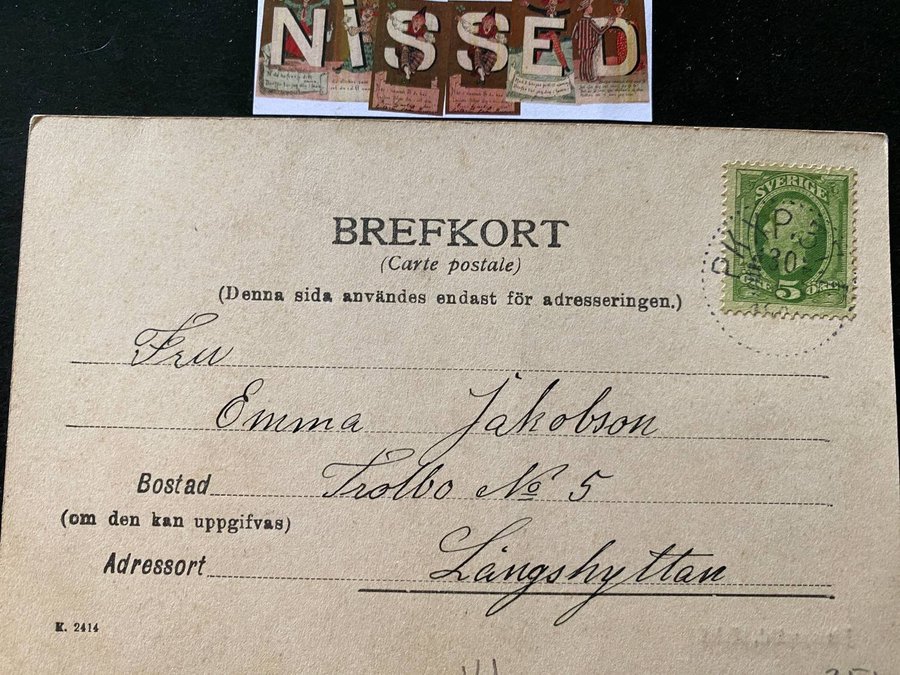 NISSED
BREFKORT
(Carte postale)
(Denna sida användes endast för adresseringen.)
SVERIGE
PKXP. 3
30
5
Fru
Emma Jakobson
Bostad Trolbo No 5
(om den kan uppgifvas)
Adressort Långshyttan
K. 2414